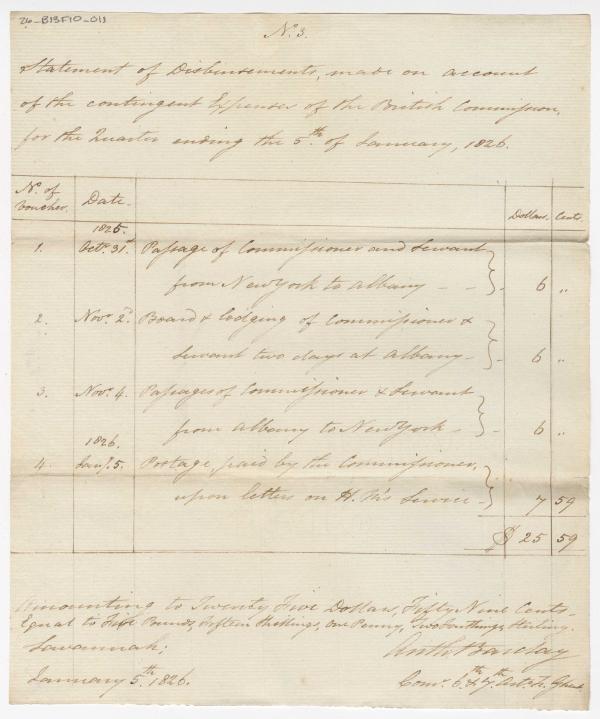 26_B13F10_011
No. 3.
Statement of Disbursements, made on account
of the contingent Expenses of the British Commission,
for the Quarter ending the 5th. of January, 1826.
No. of Voucher. Date. Dollars. Cents.
1825.
1. Octr. 31st. Passage of Commissioner and Servant
from New York to Albany - - - 6 "
2. Novr. 2d. Board & Lodging of Commissioner &
Servant two days at Albany - - 6 "
3. Novr. 4. Passages of Commissioner & Servant
from Albany to New York - - 6 "
1826.
4. Jany. 5. Postage, paid by the Commissioner,
upon letters on H. M's Service - 7 59
$ 25 59
Amounting to Twenty Five Dollars, Fifty Nine Cents -
Equal to Five Pounds, Fifteen Shillings, One Penny, Two Farthings, Sterling.
Savannah; Anth: Barclay
January 5th. 1826. Comr. 6th & 7th Art: Tr: Ghent